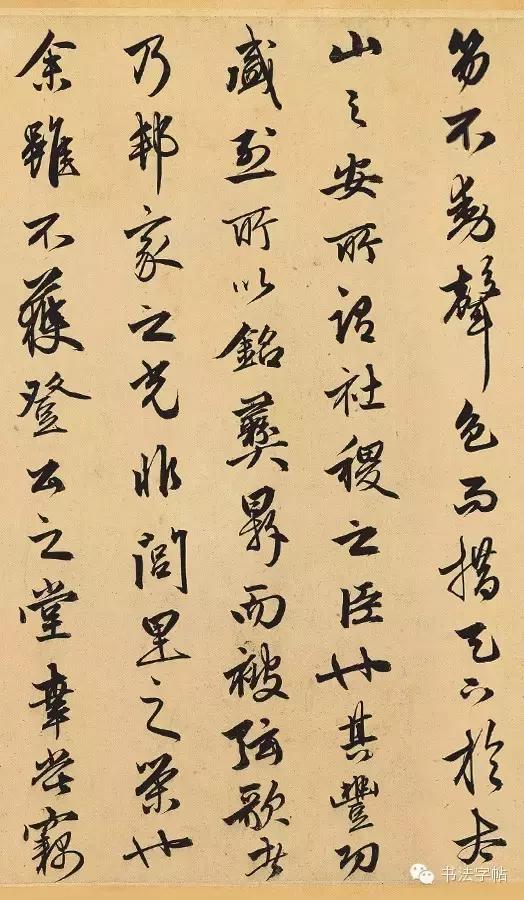 笏不動聲色而措天下於太
山之安所謂社稷之臣也其豐功
盛烈所以銘彝鼎而被弦歌者
乃邦家之光非閭里之榮也
余雖不獲登公之堂幸嘗竊
书法字帖